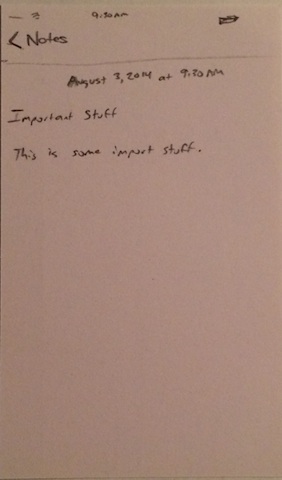 9:30 AM
< Notes
August 3, 2014 at 9:30 AM
Important Stuff
This is some import stuff.